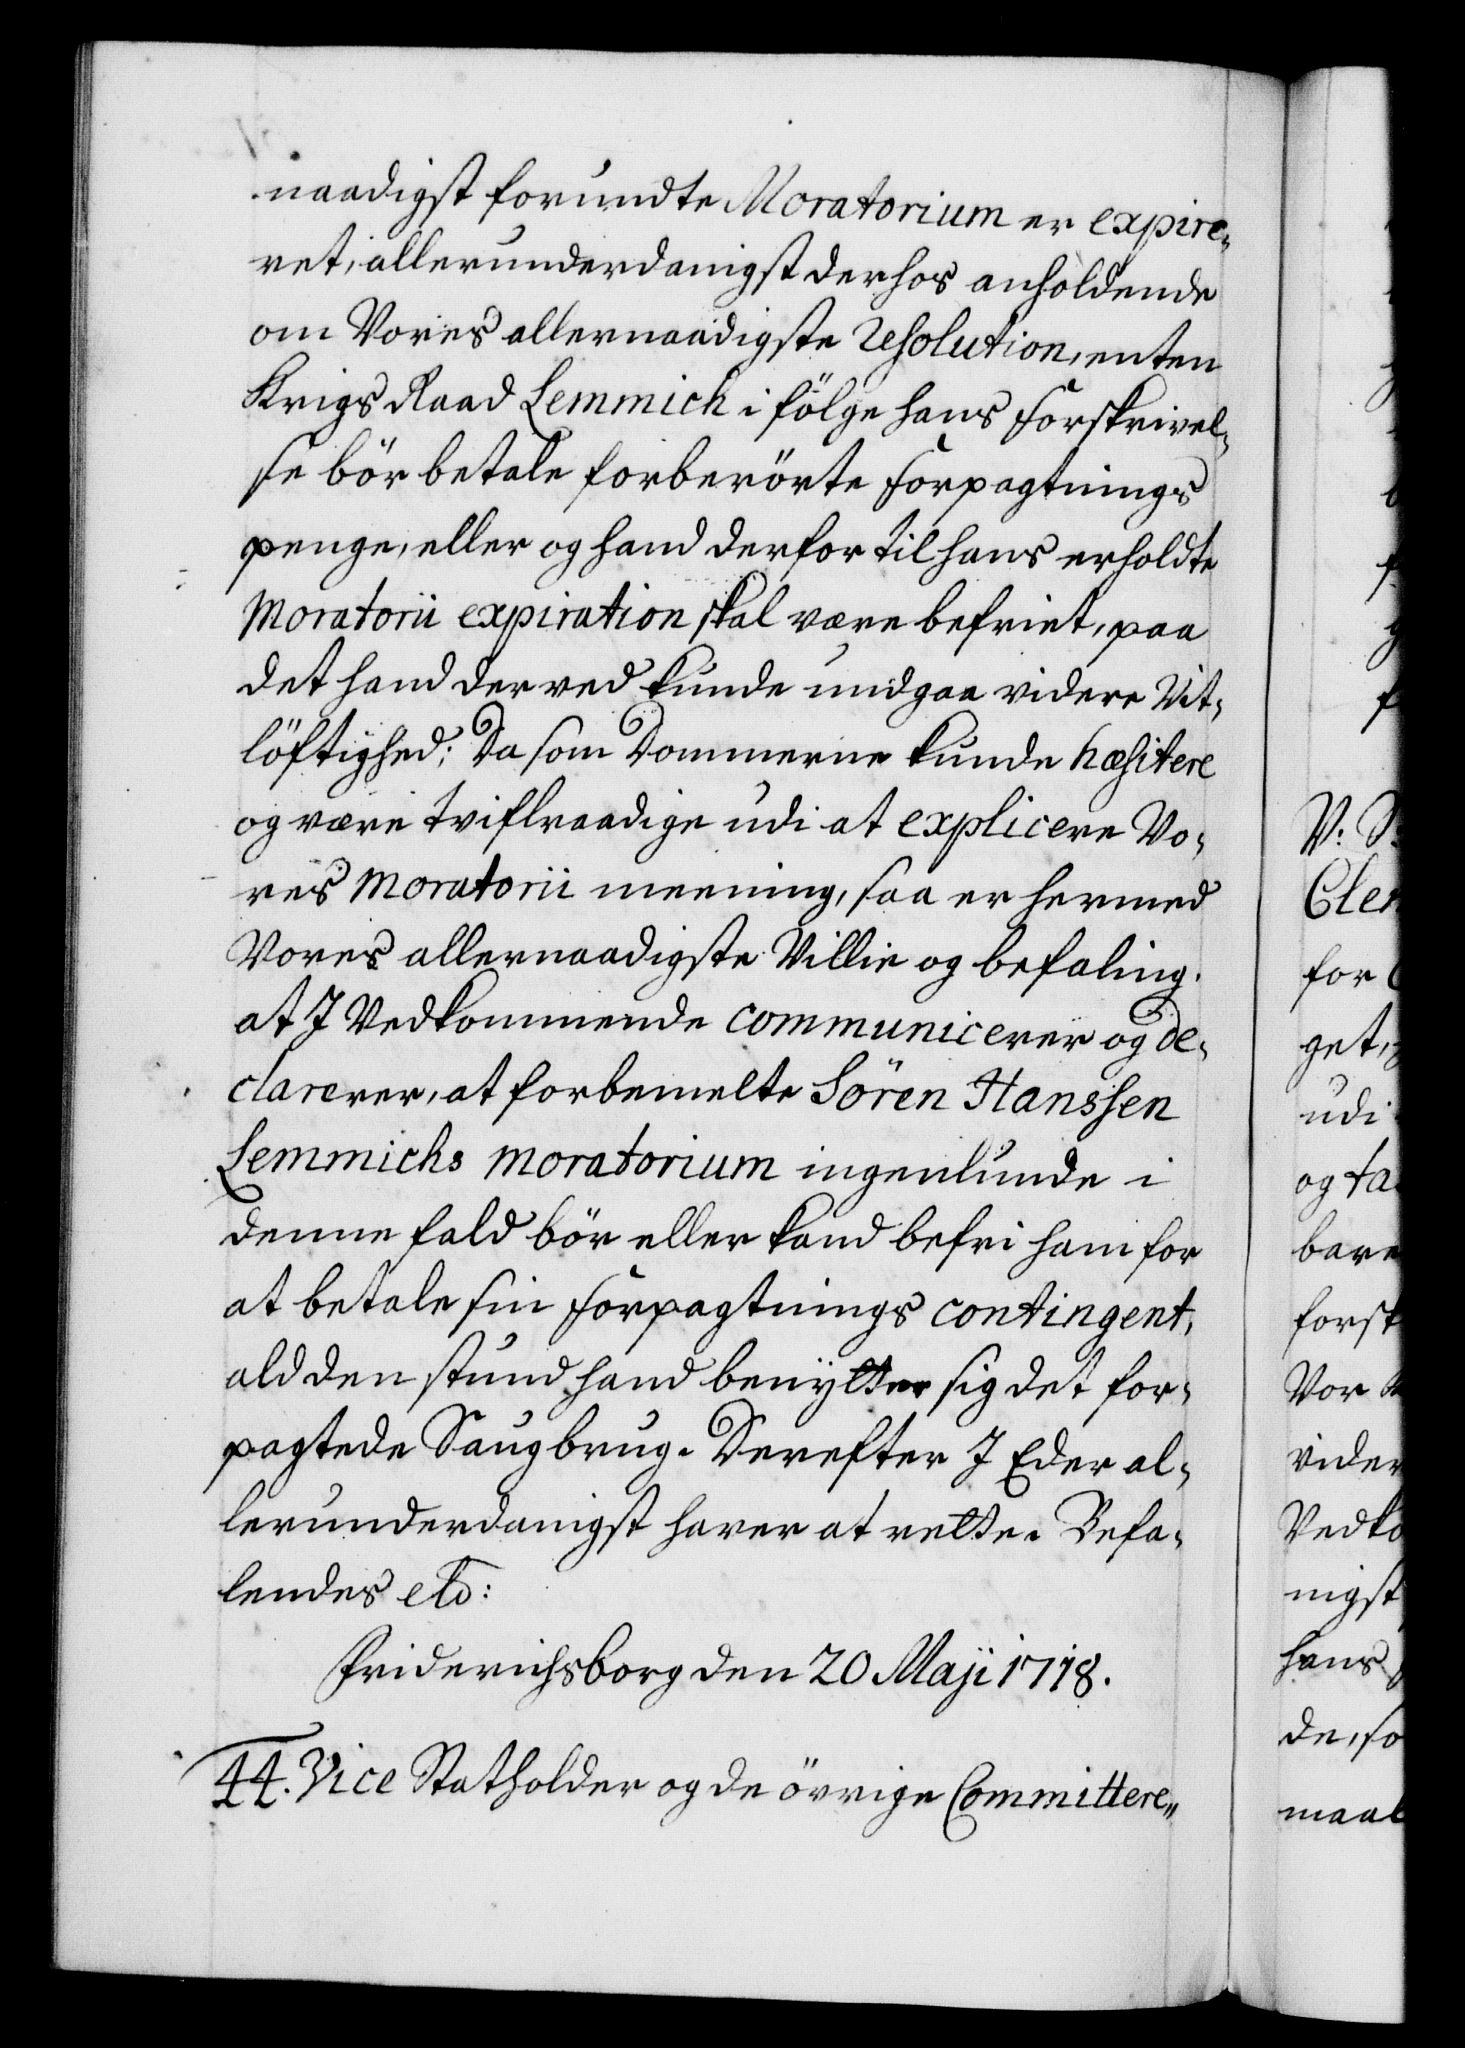 naadigst forundte Moratorium er expire-
ret, allerunderdanigst derhos anholdende
om Vores allernaadigste Resolution, enten
Krigs Raad Lemmich i fölge hans forskrivel-
se bör betale forberörte forpagtnings
penge, eller og hand derfor til hans erholdte
Moratorii expiration skal være befriet, paa
det hand derved kunde undgaa videre Vit-
löftighed; Da som Dommerne kunde hæsitere
og være tviflraadige udi at explicere Vo-
res Moratorii meening, saa er hermed
Vores allernaadigste Villie og befaling.
at I Vedkommende communicerer og de-
clarerer, at forbemelte Sören Hanssen
Lemmichs moratorium ingenlunde i
denne fald bör eller kand befri ham for
at betale sin forpagtnings contingent,
ald den stund hand benÿtter sig det for-
pagtede Saugbrug. Derefter I Eder al-
lerunderdanigst haver at rette. Befa-
lendes etc:
Friderichsborg den 20 Maji 1718.
44. Vice Statholder og de övrige Committere„
V: S:
Clem
for
get,
udi
og ta
bare
forsk
Vor
vider
Vedko
nigst
hans
de, so
maal